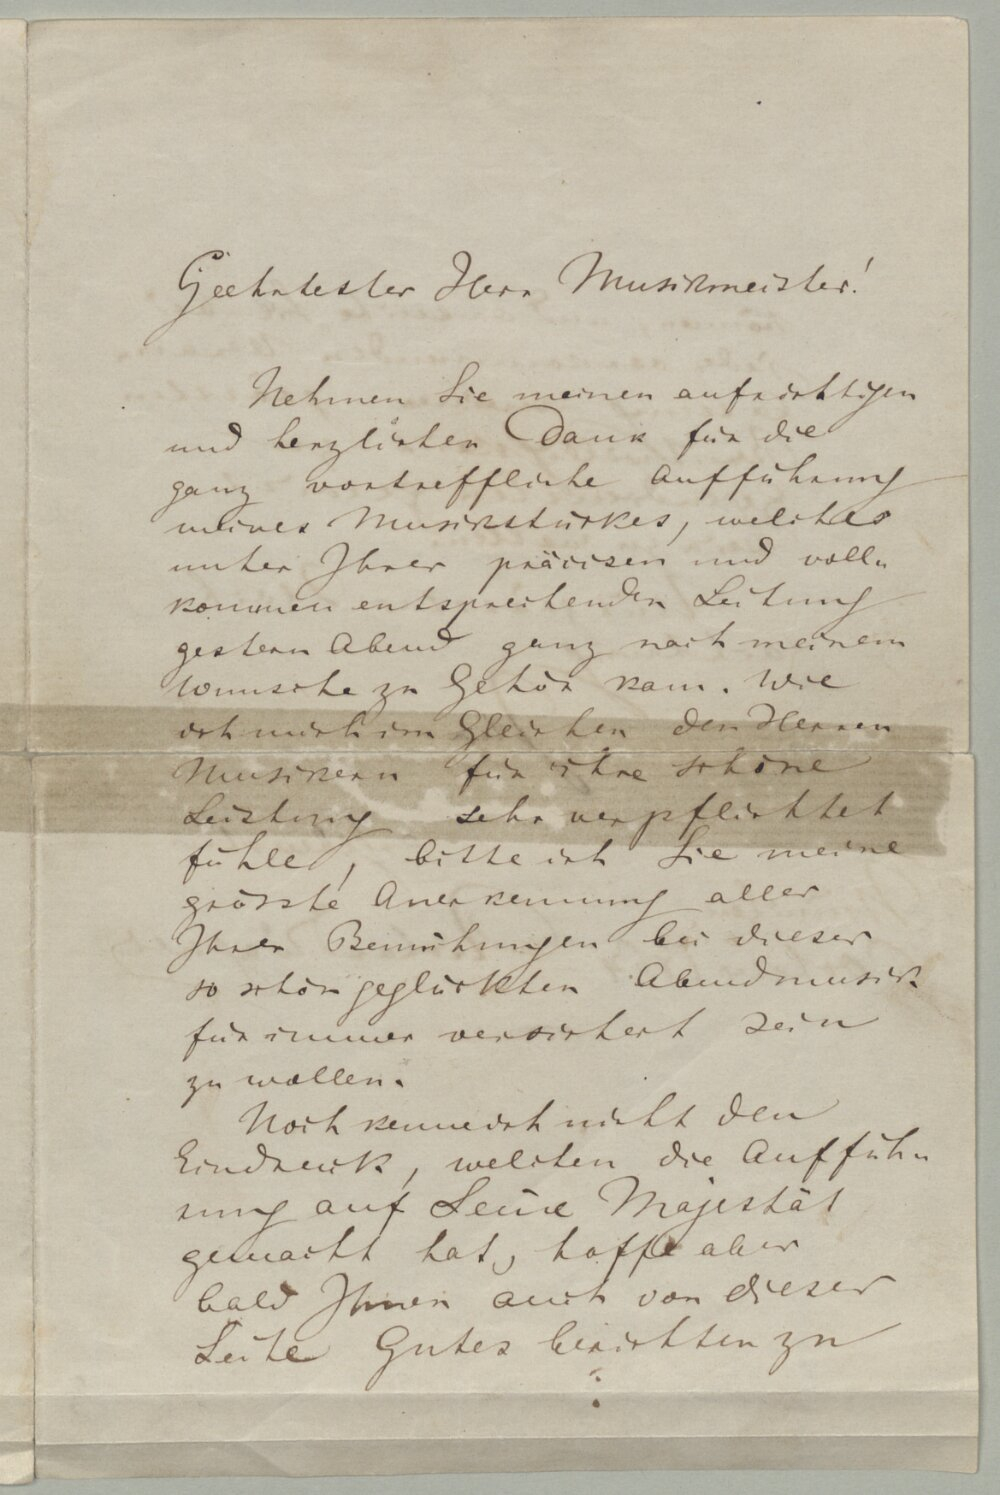 Geehrtester Herr Musikmeister!
Nehmen Sie meinen aufrichtigen
und herzlichen Dank für die
ganz vortreffliche Aufführung
meines Musikstückes, welches
unter Ihrer präcisen und voll-
kommen entsprechenden Leitung
gestern Abend ganz nach meinem
Wunsche zu Gehör kam. Wie
ich mich im Gleichen den Herren
Musikern für ihre schöne
Leistung sehr verpflichtet
fühle, bitte ich Sie meine
grösste Anerkennung aller
Ihrer Bemühungen bei dieser
so schön geglückten Abendmusik
für immer versichert sein
zu wollen.
Noch kenne ich nicht den
Eindruck, welchen die Aufführ-
ung auf Seine Majestät
gemacht hat, hoffe aber
bald Ihnen auch von dieser
Seite Gutes berichten zu